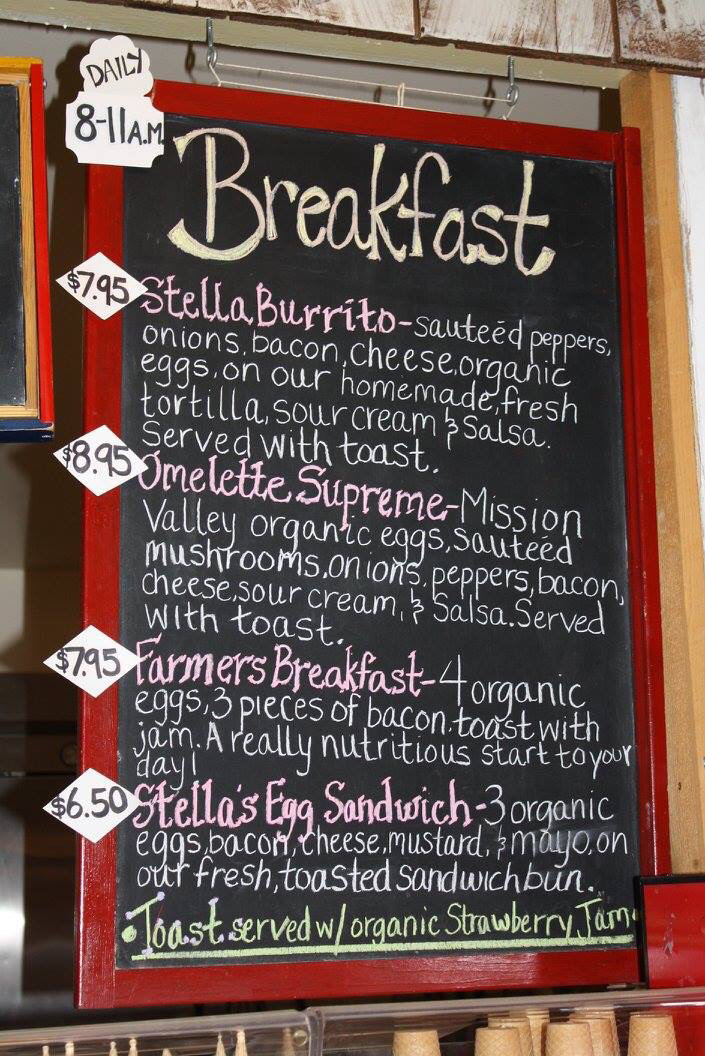 DAILY
8-11 A.M.
Breakfast
$7.95
Stella Burrito-sauteéd peppers,
onions, bacon, cheese, organic
eggs, on our homemade, fresh
tortilla, sour cream & Salsa.
Served with toast.
$8.95
Omelette Supreme-Mission
Valley organic eggs, sauteéd
mushrooms, onions, peppers, bacon,
cheese, sour cream, & Salsa. Served
with toast.
$7.95
Farmers Breakfast-4 organic
eggs, 3 pieces of bacon, toast with
jam. A really nutritious start to your
day!
$6.50
Stella's Egg Sandwich-3 organic
eggs, bacon, cheese, mustard, & mayo, on
our fresh, toasted sandwich bun.
Toast served w/ organic Strawberry Jam